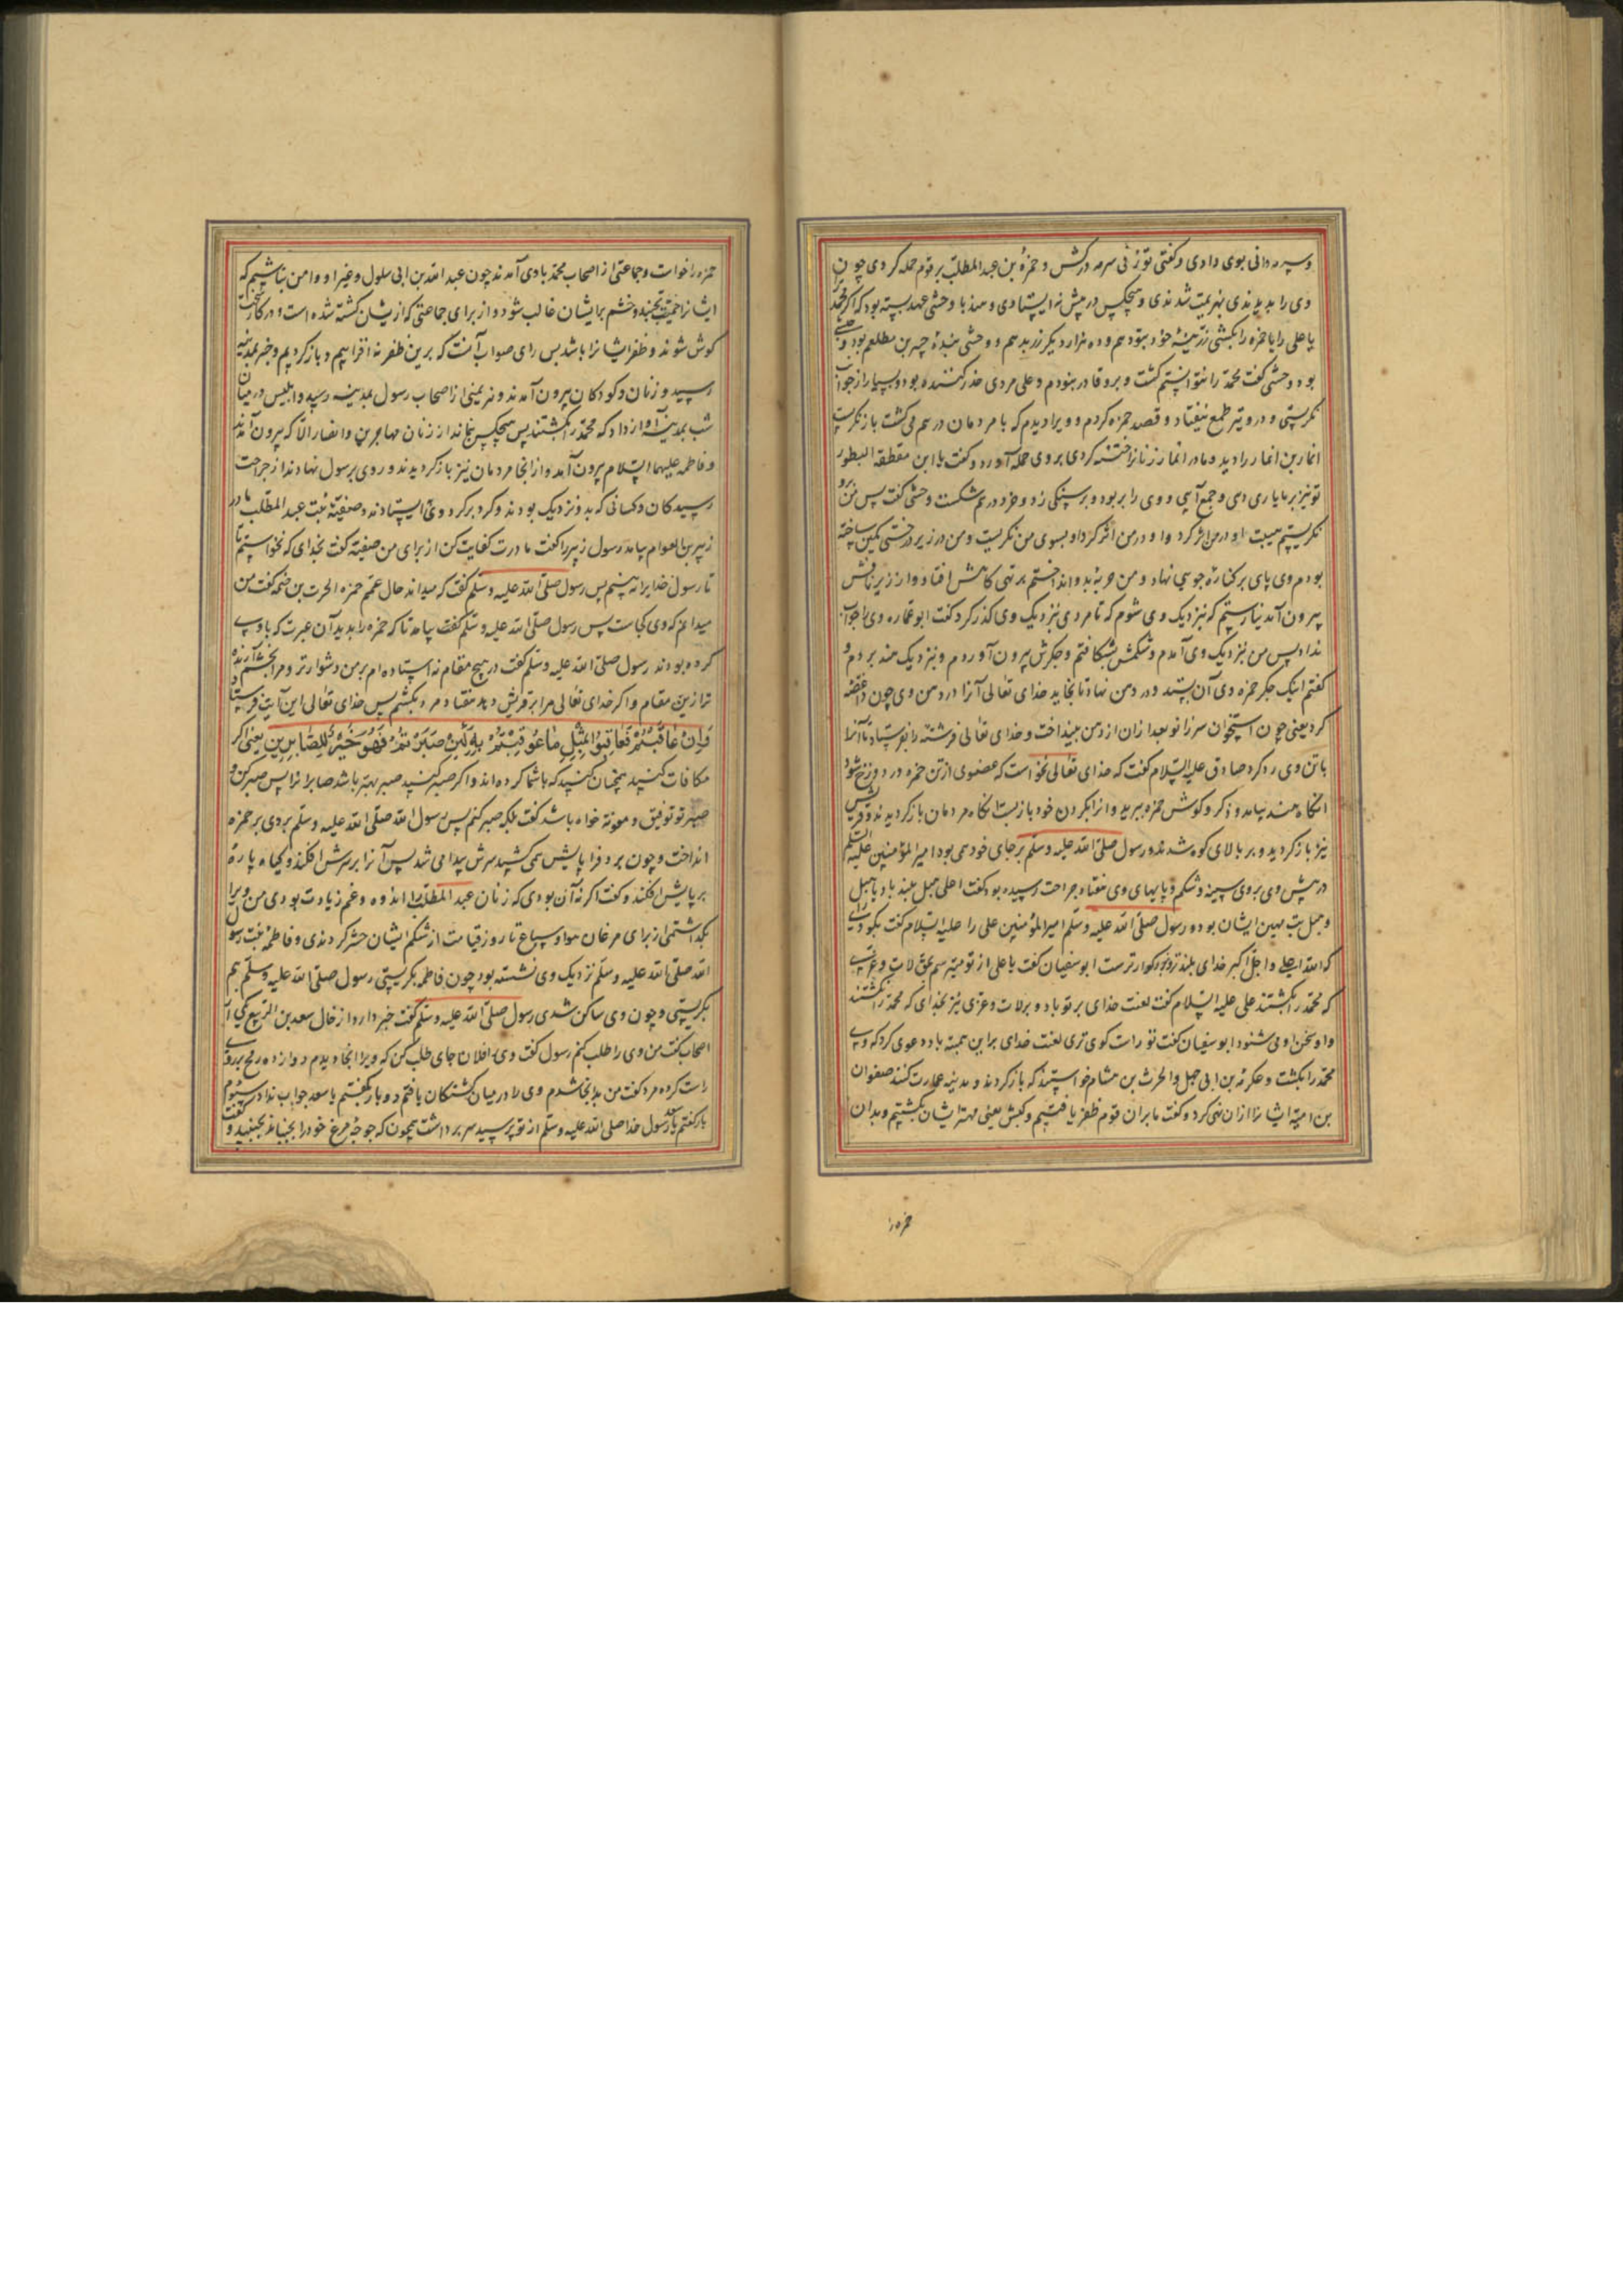 و سرمه دانی بوی دادی و گفتی تو زنی سرمه درکش و حمزة بن عبد المطلب بر قوم حمله کردی چون
وی را بدیدندی بهزیمت شدندی و هیچکس در پیش نه ایستادی و هند با وحشی عهد بسته بود که اگر محمد
یا علی را یا حمزه را بکشی زر هزینهٔ خود بتو دهم و ده هزار دیگر زر بدهم و وحشی بندهٔ جبیر بن مطعم بود و حبشی
بود وحشی گفت محمد را نتوانستم کشت و برو قادر نبودم و علی مردی حذر کننده بود و بسیار از جوانب
نکریستی و درو نیز طمع نیفتاد و قصد حمزه کردم و ویرا دیدم که با مردمان در هم می گشت باز نکریست
انمار بن انمار را دید و مادر انمار زنانرا ختنه کردی بروی حمله آورد و گفت یا ابن مقطعة البظور
تو نیز بر ما یاری دهی و جمع آیی و وی را بربود و بر سنگی زد و خرد در هم شکست وحشی گفت پس من برو
نکریستم هیبت او در من اثر کرد و او بسوی من نکریست و من در زیر درختی کمین ساخته
بودم وی پای بر کنارهٔ جوی نهاد و من حربه بدو انداختم بر تهی کاهش افتاد و از زیر نافش
بیرون آمد نیارستم که نزدیک وی شوم که تا مردی نزدیک وی گذر کرد گفت ابو عماره وی را جواب
نداد پس من نزدیک وی آمدم و شکمش بشکافتم و جگرش بیرون آوردم و نزدیک هند بردم و
گفتم اینک جگر حمزه وی آن بستد و در دهن نهاد تا بخاید خدای تعالی آنرا در دهن وی چون داغصه
کرد یعنی چون استخوان سر زانو بعد از آن از دهن بینداخت و خدای تعالی فرشته را بفرستاد تا آنرا
با تن وی رد کرد صادق علیه السلام گفت که خدای تعالی نخواست که عضوی از تن حمزه در دوزخ شود
آنگاه هند بیامد و ذکر و گوش حمزه ببرید و از ابکردن خود بازبست انگاه مردمان بازگردیدند و قریش
نیز بازگردید و بر بالای کوه شدند و رسول صلی الله علیه وسلم بر جای خود می بود امیر المؤمنین علیه السلم
در پیش وی بر وی سینه و شکم و پایهای وی هفتاد جراحت رسیده بود گفت اعلی هبل بلند باد یا هبل
و هبل بت مهین ایشان بود و رسول صلی الله علیه وسلم امیر المؤمنین علی را علیه السلام گفت بگو
که الله اعلی و اجل اکبر خدای بلندتر و بزرگوارترست ابو سفیان گفت یا علی از تو میپرسم بحق لات و عزی
که محمد را بکشتند علی علیه السلام گفت لعنت خدای بر تو باد و بر لات و عزی نیز بخدای که محمد را نکشتند
و او سخن او می شنود ابو سفیان گفت تو راست گوی تری لعنت خدای بر ابن قمیه باد دعوی کرد که وی
محمد را بکشت و عکرمة بن ابی جهل و الحرث بن هشام خواستند که بازگردند و مدینه غارت کنند صفوان
بن امیه ایشانرا از آن نهی کرد و گفت ما بر آن قوم ظفر یافتیم و کبش یعنی مهتر ایشان بکشتیم و بدان
حمزه را
حمزه را خواست و جماعتی از اصحاب محمد با وی آمدند چون عبد الله بن ابی سلول و غیر او و امن نباشیم که
ایشانرا حمیت بجنبد و خشم بر ایشان غالب شود و از برای جماعتی که ازیشان کشته شده است و در کار سخت
کوش شوند و ظفر ایشانرا باشد پس رای صواب آنست که برین ظفر نه افزاییم و بازگردیم و خبر بمدینه
رسید و زنان و کودکان بیرون آمدند و هزیمتی از اصحاب رسول بمدینه رسید و ابلیس در میان
شب بمدینه آواز داد که محمد را بکشتند پس هیچکس بنماند از زنان مهاجرین و انصار الا که بیرون آمدند
و فاطمه علیها السلام بیرون آمد و از آنجا مردمان نیز بازگردیدند و روی برسول نهادند از جراحت
رسیدکان و کسانی که بدو نزدیک بودند و گرد بر گرد وی ایستادند و صفیة بنت عبد المطلب مادر
زبیر بن العوام بیامد رسول زبیر را گفت مادرت کفایت کن از برای من صفیه گفت بخدای که نخواستم تا
تا رسول خدا را نه بینم پس رسول صلی الله علیه وسلم گفت که میداند حال عمم حمزه الحرث بن صمه گفت من
میدانم که وی کجاست پس رسول صلی الله علیه وسلم گفت بیامد تا که حمزه را بدید آن عبرت که با وی
کرده بودند رسول صلی الله علیه وسلم گفت در هیچ مقام نه استاده ام بر من دشوارتر و مرا بخشم آرنده
تر ازین مقام و اگر خدای تعالی مرا بر قریش دهد هفتاد مرد بکشم پس خدای تعالی این آیت فرستاد
وَاِنْ عَاقَبْتُمْ فَعَاقِبُوا بِمِثْلِ مَا عُوقِبْتُمْ بِهِ وَلَئِنْ صَبَرْتُمْ لَهُوَ خَيْرٌ لِلصَّابِرِينَ یعنی اگر
مکافات کنید همچنان کنید که با شما کرده اند و اگر صبر کنید صبر بهتر باشد صابرانرا پس صبر کن و
صبر تو توفیق و معونة خواه باشد گفت بلکه صبر کنم پس رسول الله صلی الله علیه وسلم بردی بر حمزه
انداخت و چون برد فرا پایش می کشید سرش پیدا می شد پس آنرا بر سرش افکند و گیاه پارهٔ
بر پایش افکند و گفت اگر نه آن بودی که زنان عبد المطلب را اندوه و غم زیادت بودی من ویرا
بگذاشتمی از برای مرغان هوا و سباع تا روز قیامت از شکم ایشان حشر کردندی و فاطمه بنت رسول
الله صلی الله علیه وسلم نزدیک وی نشسته بود چون فاطمه بگریستی رسول صلی الله علیه وسلم هم
بگریستی و چون وی ساکن شدی رسول صلی الله علیه وسلم گفت خبر دارد از حال سعد بن الربیع یکی از
اصحاب گفت من وی را طلب کنم رسول گفت وی فلان جای طلب کن که ویرا آنجا دیدم دوازده رمح برو
راست کرده مرد گفت من بدانجا شدم وی را در میان کشتکان یافتم دو بار گفتم یا سعد جواب نداد سیوم
بار گفتم یا سعد رسول خدا صلی الله علیه وسلم از تو پرسید سر برداشت همچون که جوجهٔ مرغ خود را بجنباند بجنبید و گفت